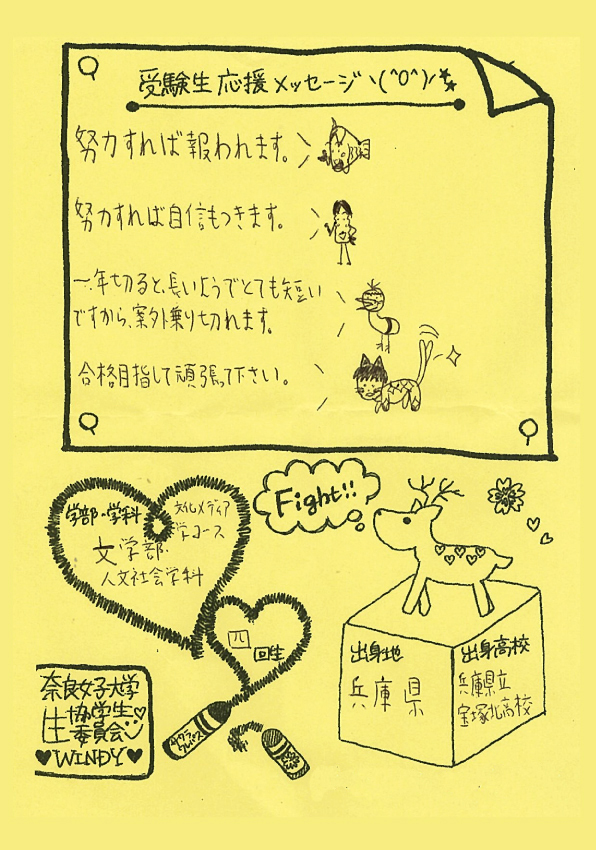 受験生応援メッセージヽ(^0^)ノ
努力すれば報われます。
努力すれば自信もつきます。
一年切ると、長いようでとても短い
ですから、案外乗り切れます。
合格目指して頑張って下さい。
Fight!!
学部・学科
文化メディア
学コース
文学部・
人文社会学科
四
回生
出身地
兵庫県
出身高校
兵庫県立
宝塚北高校
奈良女子大学
生協学生
委員会
♥WINDY♥
サクラ
クレパス